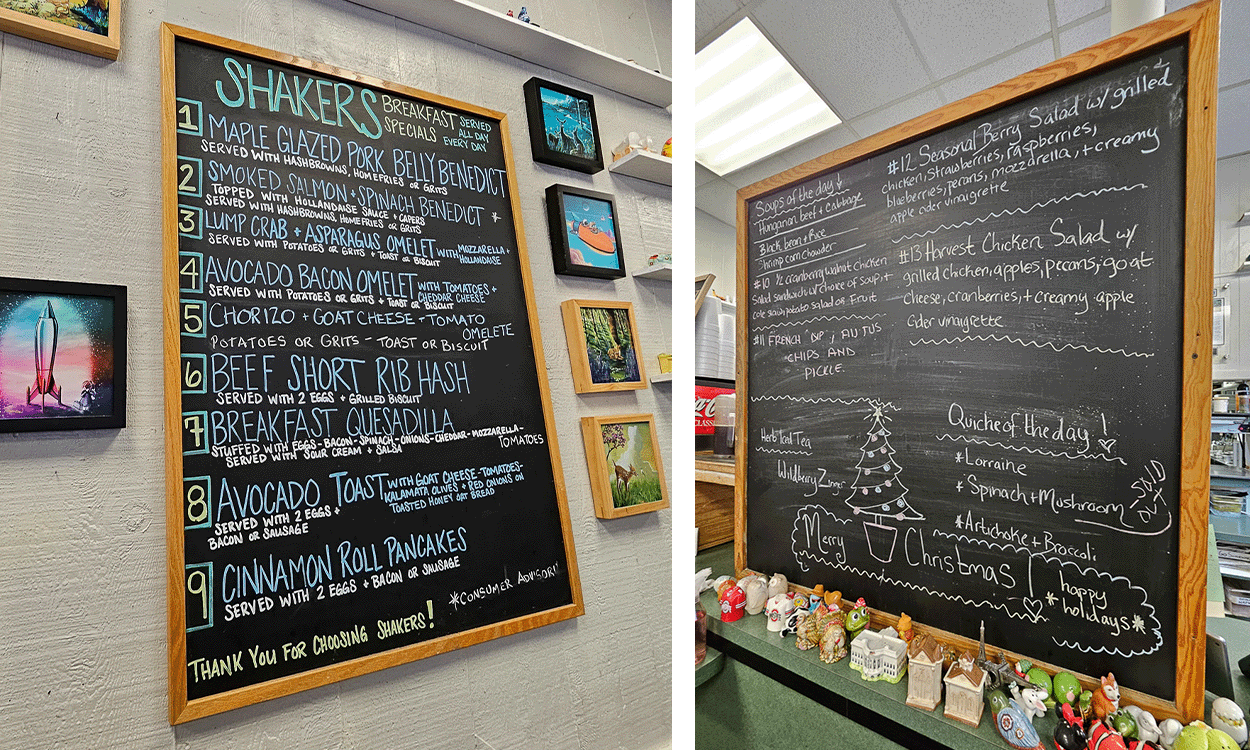 SHAKERS
BREAKFAST SERVED
SPECIALS ALL DAY
EVERY DAY
1 MAPLE GLAZED PORK BELLY BENEDICT
SERVED WITH HASHBROWNS, HOMEFRIES OR GRITS
2 SMOKED SALMON + SPINACH BENEDICT *
TOPPED WITH HOLLANDAISE SAUCE + CAPERS
SERVED WITH HASHBROWNS, HOMEFRIES OR GRITS
3 LUMP CRAB + ASPARAGUS OMELET WITH MOZZARELLA +
HOLLANDAISE
SERVED WITH POTATOES OR GRITS + TOAST OR BISCUIT
4 AVOCADO BACON OMELET WITH TOMATOES +
CHEDDAR CHEESE
SERVED WITH POTATOES OR GRITS + TOAST OR BISCUIT
5 CHORIZO + GOAT CHEESE - TOMATO
OMELETE
POTATOES OR GRITS - TOAST OR BISCUIT
6 BEEF SHORT RIB HASH
SERVED WITH 2 EGGS + GRILLED BISCUIT
7 BREAKFAST QUESADILLA
STUFFED WITH EGGS - BACON - SPINACH - ONIONS - CHEDDAR - MOZZARELLA -
TOMATOES
SERVED WITH SOUR CREAM + SALSA
8 AVOCADO TOAST WITH GOAT CHEESE - TOMATOES -
KALAMATA OLIVES + RED ONIONS ON
TOASTED HONEY OAT BREAD
SERVED WITH 2 EGGS +
BACON OR SAUSAGE
9 CINNAMON ROLL PANCAKES
SERVED WITH 2 EGGS + BACON OR SAUSAGE
*CONSUMER ADVISORY
THANK YOU FOR CHOOSING SHAKERS!
Soups of the day
Hungarian beef + cabbage
Black bean + Rice
Shrimp corn chowder
#10 ½ cranberry walnut chicken
Salad sandwich w/ choice of soup +
cole slaw, potato salad or Fruit
#11 FRENCH DIP ; AU JUS
CHIPS AND
PICKLE.
Herb Iced Tea
Wildberry Zinger
#12 Seasonal Berry Salad w/ grilled
chicken, strawberries, raspberries,
blueberries, pecans, mozzarella, + creamy
apple cider vinaigrette
#13 Harvest Chicken Salad w/
grilled chicken, apples, pecans, goat
cheese, cranberries, + creamy apple
cider vinaygrette
Quiche of the day!
*Lorraine
*Spinach + Mushroom
*Artichoke + Broccoli
Merry Christmas
happy
*holidays*